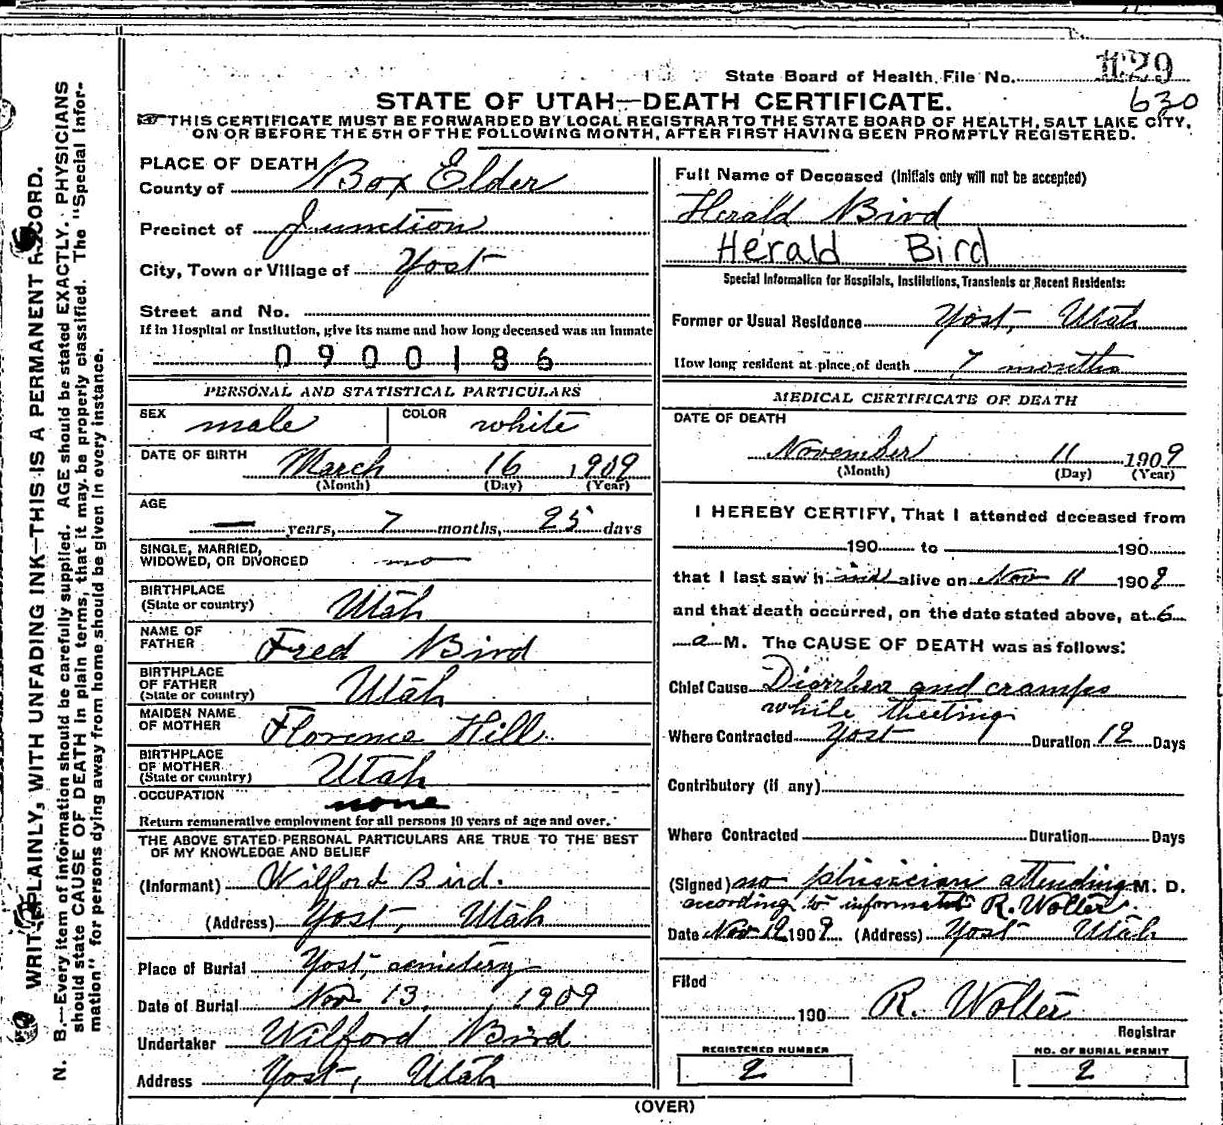 State Board of Health, File No. 1129
630
STATE OF UTAH—DEATH CERTIFICATE.
THIS CERTIFICATE MUST BE FORWARDED BY LOCAL REGISTRAR TO THE STATE BOARD OF HEALTH, SALT LAKE CITY,
ON OR BEFORE THE 5TH OF THE FOLLOWING MONTH, AFTER FIRST HAVING BEEN PROMPTLY REGISTERED.
WRITE PLAINLY, WITH UNFADING INK—THIS IS A PERMANENT RECORD.
N. B.—Every item of information should be carefully supplied. AGE should be stated EXACTLY. PHYSICIANS
should state CAUSE OF DEATH in plain terms, that it may be properly classified. The "Special Infor-
mation" for persons dying away from home should be given in every instance.
PLACE OF DEATH
County of Box Elder
Precinct of Junction
City, Town or Village of Yost
Street and No.
If in Hospital or Institution, give its name and how long deceased was an inmate
0900186
PERSONAL AND STATISTICAL PARTICULARS
SEX male COLOR white
DATE OF BIRTH March 16 1909
(Month) (Day) (Year)
AGE
— years, 7 months, 25 days
SINGLE, MARRIED,
WIDOWED, OR DIVORCED no
BIRTHPLACE
(State or country) Utah
NAME OF
FATHER Fred Bird
BIRTHPLACE
OF FATHER
(State or country) Utah
MAIDEN NAME
OF MOTHER Florence Hill
BIRTHPLACE
OF MOTHER
(State or country) Utah
OCCUPATION none
Return remunerative employment for all persons 10 years of age and over.
THE ABOVE STATED PERSONAL PARTICULARS ARE TRUE TO THE BEST
OF MY KNOWLEDGE AND BELIEF
(Informant) Wilford Bird.
(Address) Yost, Utah
Place of Burial Yost, cemetery
Date of Burial Nov 13, 1909
Undertaker Wilford Bird
Address Yost, Utah
Full Name of Deceased (Initials only will not be accepted)
Herald Bird
Herald Bird
Special Information for Hospitals, Institutions, Transients or Recent Residents:
Former or Usual Residence Yost, Utah
How long resident at place of death 7 months
MEDICAL CERTIFICATE OF DEATH
DATE OF DEATH
November 11 1909
(Month) (Day) (Year)
I HEREBY CERTIFY, That I attended deceased from
190 to 190
that I last saw h alive on Nov 11 1909
and that death occurred, on the date stated above, at 6
a M. The CAUSE OF DEATH was as follows:
Chief Cause Diarrhea and cramps
while theeting
Where Contracted Yost Duration 12 Days
Contributory (if any)
Where Contracted Duration Days
(Signed) no phisician attending M. D.
according to R. Wolter
Date Nov 12 1909 (Address) Yost Utah
Filed
190 R. Wolter
Registrar
REGISTERED NUMBER
2
NO. OF BURIAL PERMIT
2
(OVER)